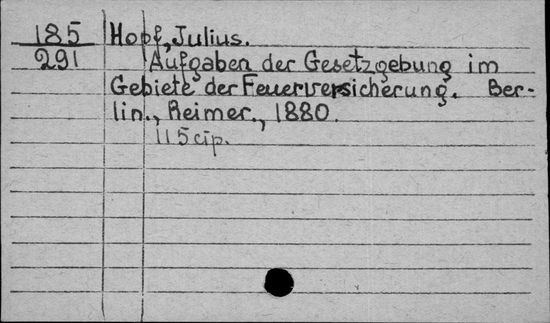 185 Hopf, Julius.
291 Aufgaben der Gesetzgebung im
Gebiete der Feuerversicherung. Ber-
lin., Reimer., 1880.
115 cтр.